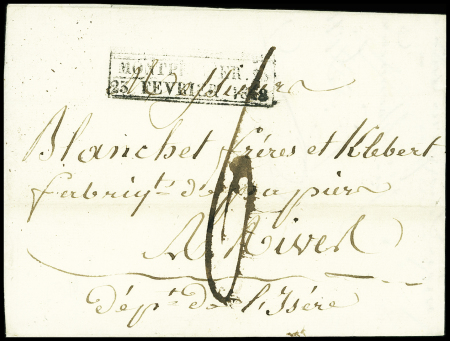 23 FEVRIER
Blanchet frères et Kleber
fabriqts de papiers
A Rives
dépt de l'Isère